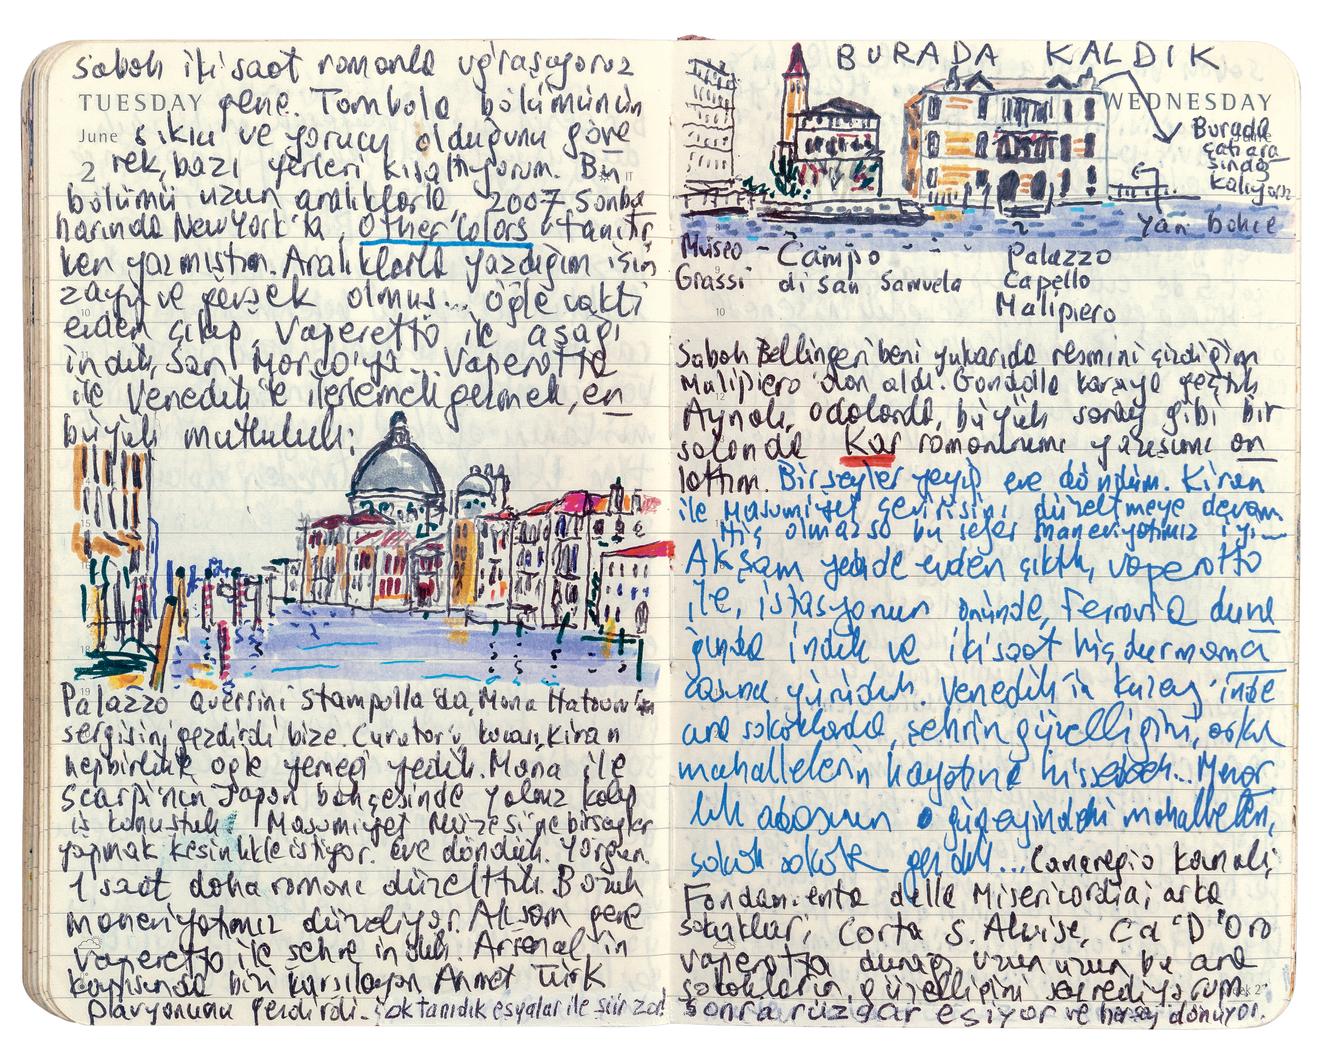 Sabah iki saat romanla uğraşıyoruz
TUESDAY gene. Tombala bölümünün
June sıkıcı ve yorucu olduğunu göre
2 rek, bazı yerleri kısaltıyorum. Bu
bölümü uzun aralıklarla 2007 Sonba
harında New York'ta, Other Colors'ı tanıtır
ken yazmıştım. Aralıklarla yazdığım için
zayıf ve gevşek olmuş... öğle vakti
10
evden çıkıp, Vaperetto ile aşağı
indik, San Marco'ya... Vaperotto
ile Venedik'te ilerlemek gezmek, en
büyük mutluluk.
19
Palazzo Querini Stampalla'da, Mona Hatoum'un
sergisini gezdirdi bize. Curator'u kocası, Kiran
hepbirlikte öğle yemeği yedik. Mona ile
Scarpi'nin Japon bahçesinde yalnız kalıp
iş konuştuk. Masumiyet Müzesi'ne birşeyler
yapmak kesinlikle istiyor. eve döndük. Yorgun.
1 saat daha romanı düzelttik. Bozuk
maneviyatımız düzeliyor. Akşam gene
vaperetto ile şehre indik. Arsenal'in
kapısında bizi karşılayan Ahmet Türk
Pavyonunu gezdirdi. çok tanıdık eşyalar ile
BURADA KALDIK
WEDNESDAY
Burada
çatıara
sında
kalıyoruz
Yan bahçe
Museo - Campo Palazzo
Grassi di San Samuela Capello
Malipiero
10
Sabah Bellingeri beni yukarıda resmini çizdiğim
Malipiero'dan aldı. Gondolla karşıya geçtik.
Aynalı, odalarda, büyük saray gibi bir
salonda Kar romanımı yazışımı an
lattım. Birşeyler yeyip eve döndüm. Kiran
ile Masumiyet çevirisini düzeltmeye devam.
Hiç olmazsa bu sefer maneviyatımız iyi...
Akşam yedide evden çıktık, vaperotto
ile, istasyonun önünde, Ferrovia dura
ğında indik ve iki saat hiç durmama
casına yürüdük. Venedik'in kuzey'inde
ara sokaklarda, şehrin güzelliğini, arka
mahallelerin hayatını hissederek...
güneyindeki mahalleleri,
sokak sokak gezdik... Canaregio kanalı,
Fondamenta della Misericordia, arka
sokakları, Corta S. Alvise, Ca'D'Oro
vaperotto durağı uzun uzun bu ara
sokakların güzelliğini seyrediyorum.
Sonra rüzgar esiyor ve herşey dönüyor.